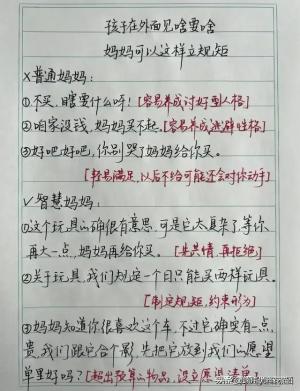 孩子在外面见啥要啥
妈妈可以这样立规矩
X普通妈妈:
①不买,瞎要什么呀! [容易养成讨好型人格]
②咱家没钱,妈妈买不起。[容易养成逃避性格]
③好吧好吧,你别哭了妈妈给你买。
[轻易满足,以后不给可能还会对你动手]
V智慧妈妈:
①这个玩具的确很有意思,可是它太复杂了,等你
再大一点,妈妈再给你买。[先共情,再拒绝]
②关于玩具,我们规定一个月只能买两样玩具。
[制定规矩,约束行为]
③妈妈知道你很喜欢这个车,不过它确实有一点
贵,我们跟它合个影,先把它放到我们的愿望
单里好吗? [超出预算的物品,设立愿望清单]